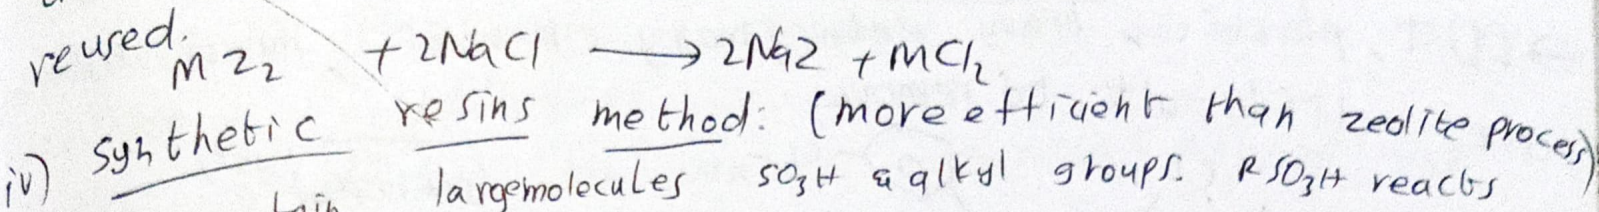 reused.
MZ₂ + 2NaCl → 2NaZ + MCl₂
iv) synthetic resins method: (more efficient than zeolite process)
largemolecules SO₃H & alkyl groups. RSO₃H reacts